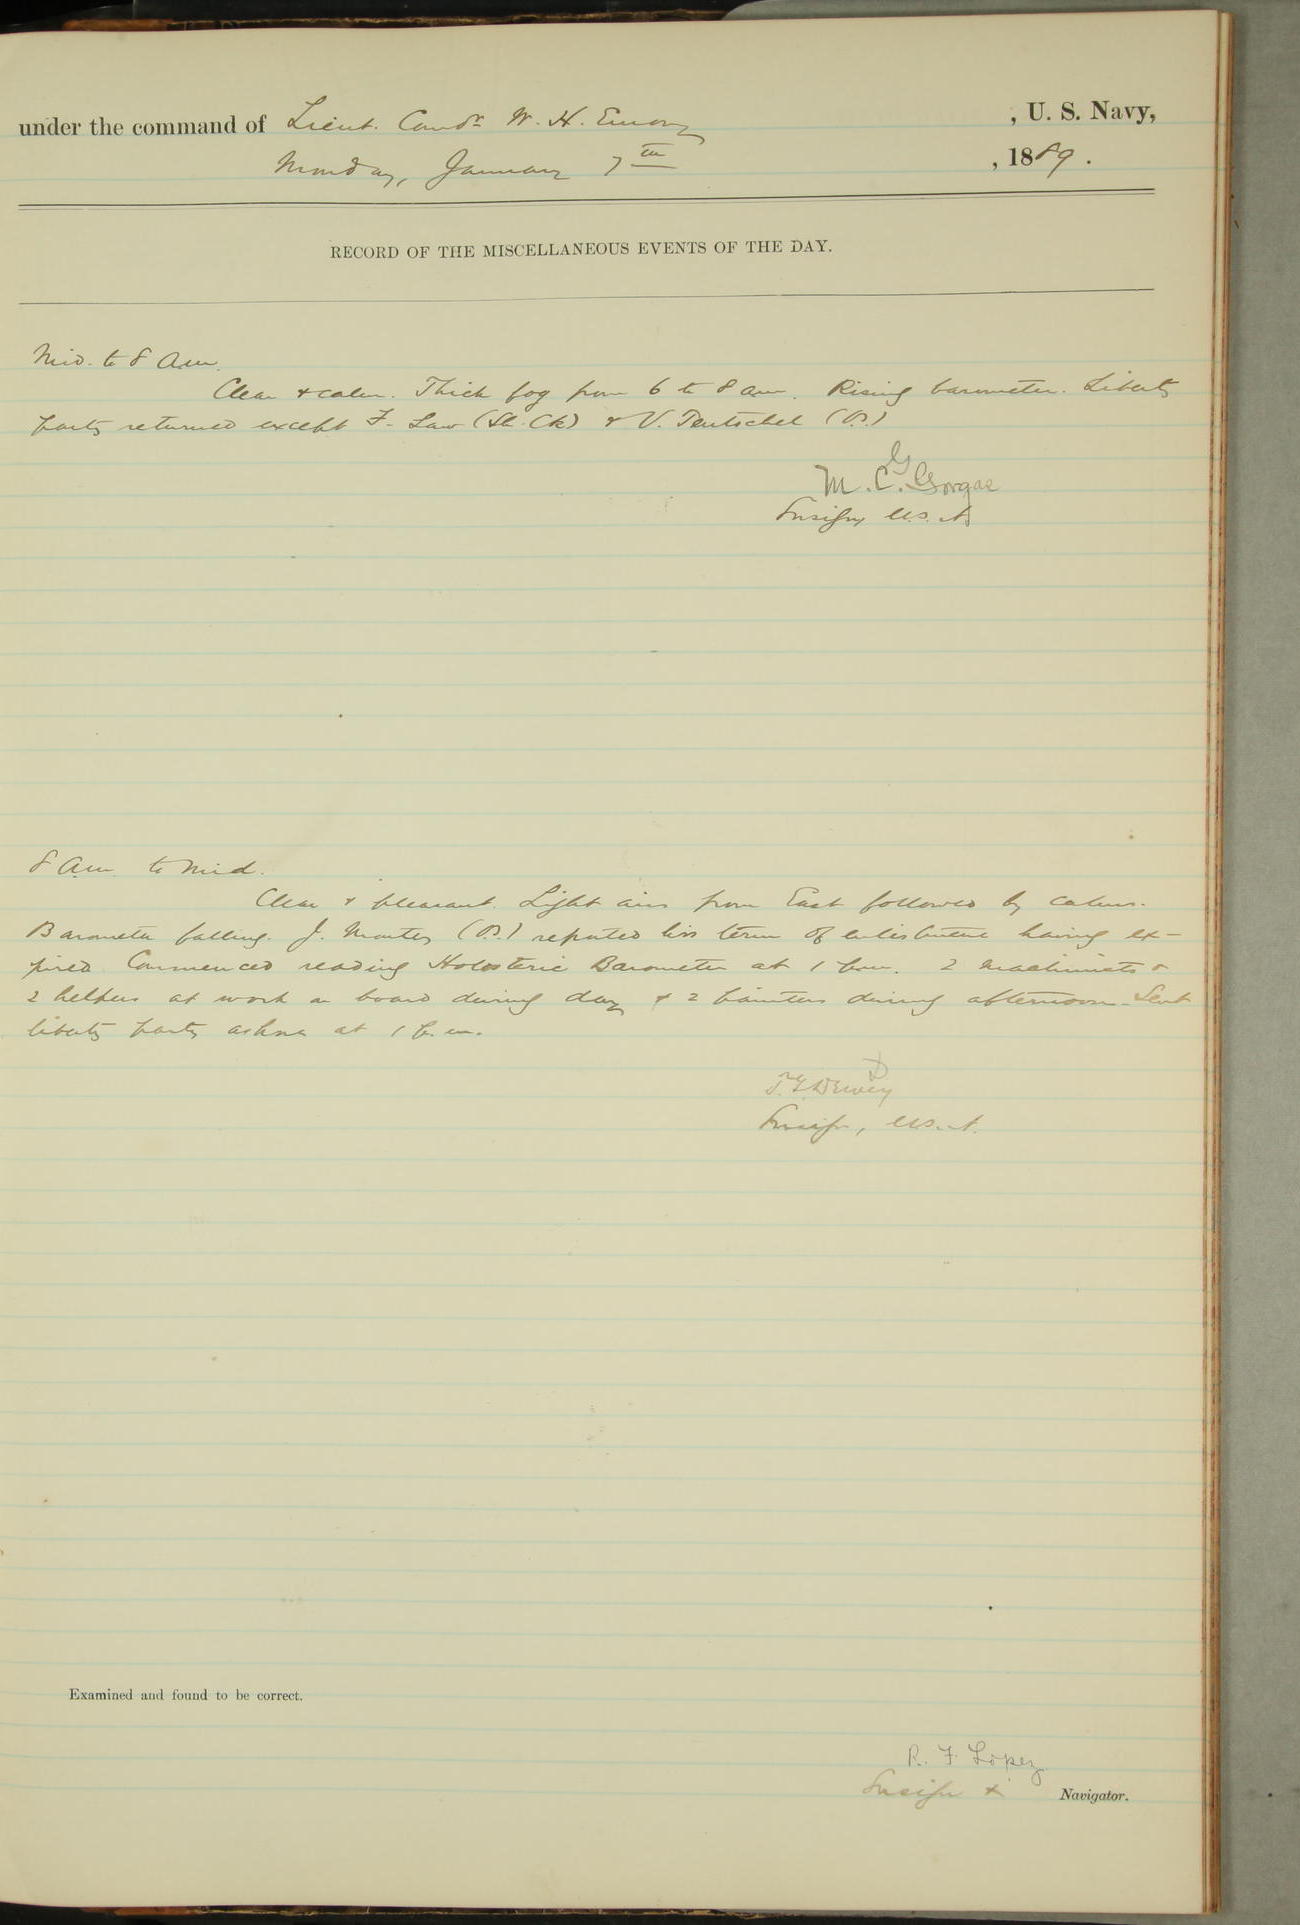 under the command of Lieut. Comdr. W. H. Emory, U. S. Navy,
Monday, January 7th, 1889.
RECORD OF THE MISCELLANEOUS EVENTS OF THE DAY.
Mid. to 8 A.m.
Clear & calm. Thick fog from 6 to 8 a.m. Rising barometer. Liberty
party returned except F. Law (Sh. Ck) & V. Teutschel
M. C. Gorgas
Ensign, U.S.N.
8 A.m. to Mid.
Clear & pleasant. Light airs from East followed by calms.
Barometer falling. J. reported his term of enlistment having ex-
pired. Commenced reading Holosteric Barometer at 1 p.m. 2 machinists &
2 helpers at work on board during day & 2 painters during afternoon. Sent
liberty party ashore at 1 p.m.
T. G. Dewey
Ensign, U.S.N.
Examined and found to be correct.
R. F. Lopez
Ensign & Navigator.